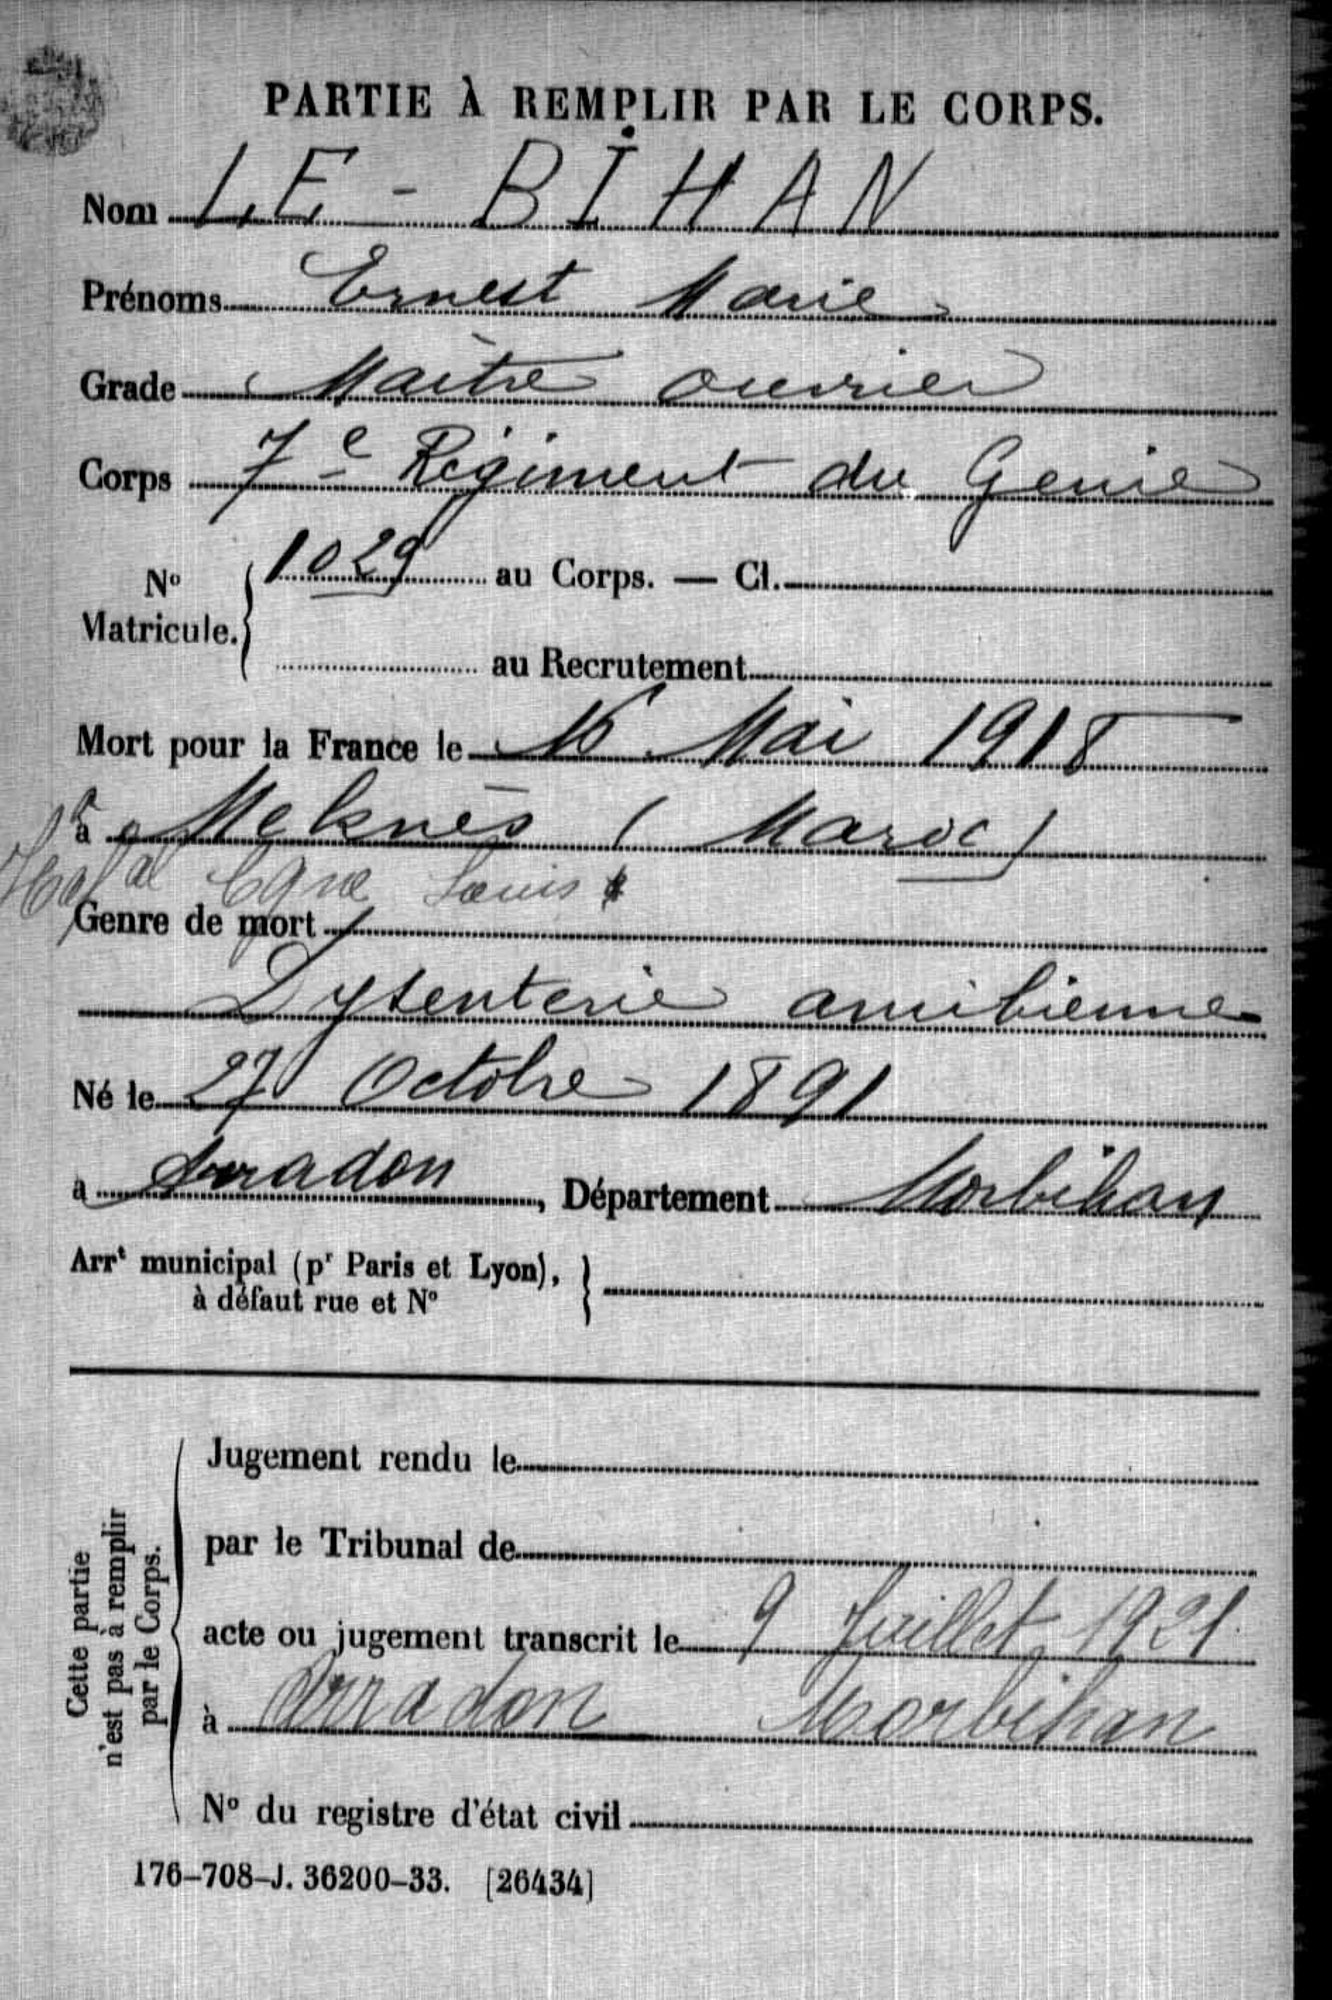 PARTIE À REMPLIR PAR LE CORPS.
Nom LE-BIHAN
Prénoms Ernest Marie
Grade Maître ouvrier
Corps 7e Régiment du Génie
No Matricule. 1029 au Corps. — Cl.
au Recrutement
Mort pour la France le 16 Mai 1918
à Meknès (Maroc)
Hopal Louis
Genre de mort
Dysenterie amibienne
Né le 27 Octobre 1891
à Arradon, Département Morbihan
Arrt municipal (pr Paris et Lyon),
à défaut rue et No
Cette partie
n'est pas à remplir
par le Corps.
Jugement rendu le
par le Tribunal de
acte ou jugement transcrit le 9 Juillet 1921
à Arradon Morbihan
No du registre d'état civil
176-708-J. 36200-33. [26434]